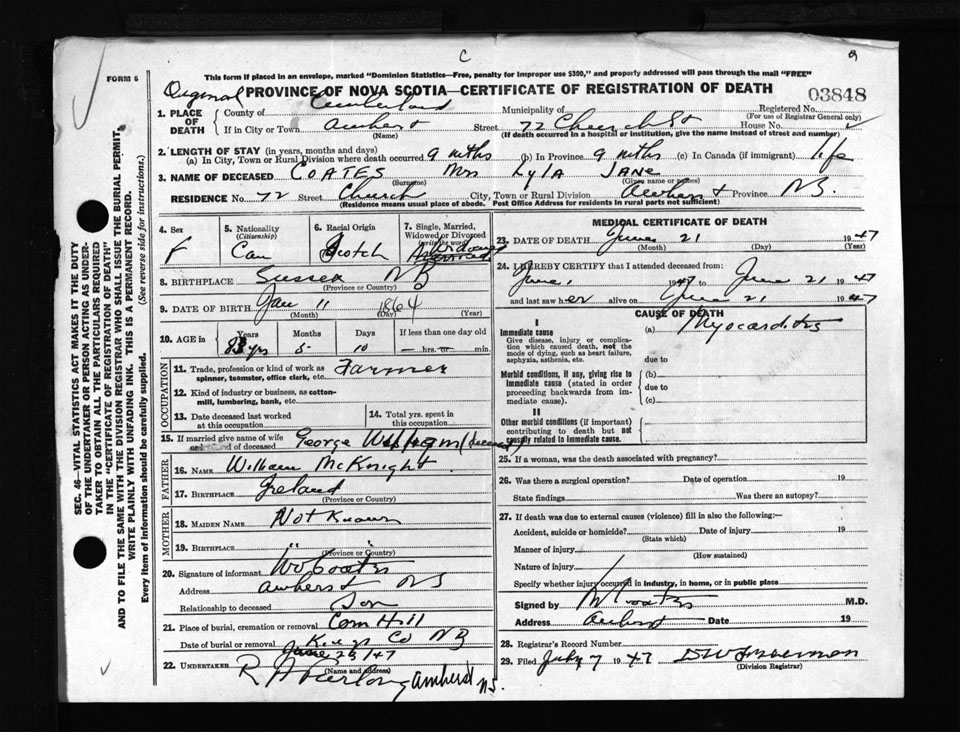 C 2
FORM 6
This form if placed in an envelope, marked "Dominion Statistics—Free, penalty for improper use $300," and properly addressed will pass through the mail "FREE"
Original PROVINCE OF NOVA SCOTIA—CERTIFICATE OF REGISTRATION OF DEATH 03848
1. PLACE OF DEATH County of Cumberland Municipality of Registered No.
(For use of Registrar General only)
If in City or Town Amherst Street 72 Church St House No.
(Name) (If death occurred in a hospital or institution, give the name instead of street and number)
2. LENGTH OF STAY (in years, months and days)
(a) In City, Town or Rural Division where death occurred 9 mths (b) In Province 9 mths (c) In Canada (if immigrant) life
3. NAME OF DECEASED COATES Mrs Lyla JANE
(Surname) (Given name or names)
RESIDENCE No. 72 Street Church City, Town or Rural Division Amherst Province NS.
(Residence means usual place of abode. Post Office Address for residents in rural parts not sufficient)
4. Sex 5. Nationality (Citizenship) 6. Racial Origin 7. Single, Married, Widowed or Divorced (write the word)
F Can Scotch Widowed
8. BIRTHPLACE Sussex NB
(Province or Country)
9. DATE OF BIRTH Jan 11 1864
(Month) (Day) (Year)
10. AGE in Years Months Days If less than one day old
83 yrs 5 10 — hrs. or — min.
OCCUPATION
11. Trade, profession or kind of work as spinner, teamster, office clerk, etc. Farmer
12. Kind of industry or business, as cotton-mill, lumbering, bank, etc.
13. Date deceased last worked at this occupation
14. Total yrs. spent in this occupation
15. If married give name of wife or husband of deceased George William (deceased)
FATHER
16. NAME William McKnight
17. BIRTHPLACE Ireland
(Province or Country)
MOTHER
18. MAIDEN NAME Not Known
19. BIRTHPLACE " "
(Province or Country)
20. Signature of informant Coates
Address Amherst NS
Relationship to deceased Son
21. Place of burial, cremation or removal Corn Hill
Kings Co NB
Date of burial or removal June 23/47
22. UNDERTAKER R Amherst N.S.
(Name and address)
MEDICAL CERTIFICATE OF DEATH
23. DATE OF DEATH June 21 1947
(Month) (Day) (Year)
24. I HEREBY CERTIFY that I attended deceased from:
June 1 1947 to June 21 1947
and last saw her alive on June 21 1947
CAUSE OF DEATH
I
Immediate cause (a) Myocarditis
Give disease, injury or complication which caused death, not the mode of dying, such as heart failure, asphyxia, asthenia, etc.
due to
Morbid conditions, if any, giving rise to immediate cause (stated in order proceeding backwards from immediate cause).
(b)
due to
(c)
II
Other morbid conditions (if important) contributing to death but not causally related to immediate cause.
25. If a woman, was the death associated with pregnancy?
26. Was there a surgical operation? Date of operation 19
State findings Was there an autopsy?
27. If death was due to external causes (violence) fill in also the following:—
Accident, suicide or homicide? Date of injury 19
(State which)
Manner of injury
(How sustained)
Nature of injury
Specify whether injury occurred in industry, in home, or in public place
Signed by Coates M.D.
Address Amherst Date 19
28. Registrar's Record Number
29. Filed July 7 1947
(Division Registrar)
SEC. 46—VITAL STATISTICS ACT MAKES IT THE DUTY
OF THE UNDERTAKER OR PERSON ACTING AS UNDERTAKER TO OBTAIN ALL THE PARTICULARS REQUIRED
IN THE "CERTIFICATE OF REGISTRATION OF DEATH"
AND TO FILE THE SAME WITH THE DIVISION REGISTRAR WHO SHALL ISSUE THE BURIAL PERMIT.
WRITE PLAINLY WITH UNFADING INK. THIS IS A PERMANENT RECORD.
Every item of information should be carefully supplied. (See reverse side for instructions.)